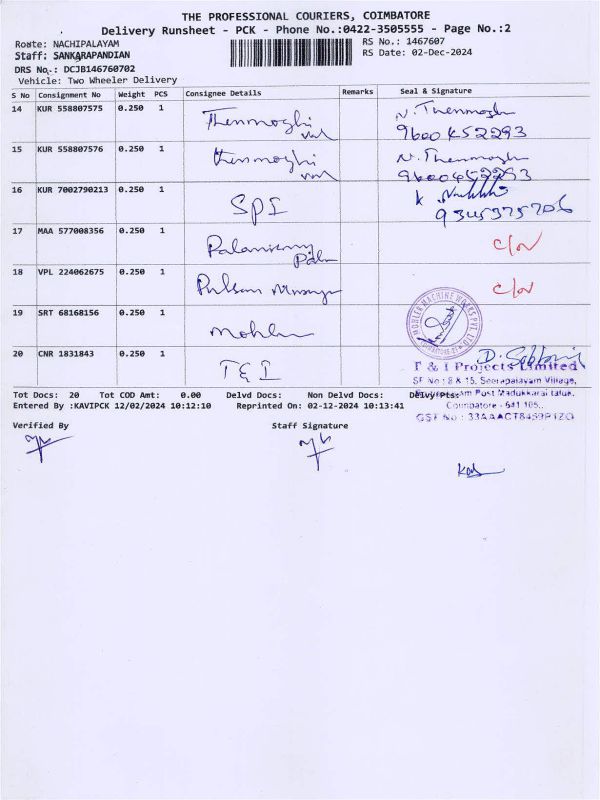 THE PROFESSIONAL COURIERS, COIMBATORE
Delivery Runsheet - PCK - Phone No.:0422-3505555 - Page No.:2
Route: NACHIPALAYAM
RS No.: 1467607
Staff: SANKARAPANDIAN
RS Date: 02-Dec-2024
DRS No.: DCJB146760702
Vehicle: Two Wheeler Delivery
S No Consignment No Weight PCS Consignee Details Remarks Seal & Signature
14 KUR 558807575 0.250 1 Thenmozhi N. Thenmozhi
9600452293
15 KUR 558807576 0.250 1 Thenmozhi N. Thenmozhi
9600452293
16 KUR 7002790213 0.250 1 SPI K
9345375706
17 MAA 577008356 0.250 1
18 VPL 224062675 0.250 1
19 SRT 68168156 0.250 1 Mohler
MOHLER MACHINE WORKS PVT. LTD.
20 CNR 1831843 0.250 1 T&I
T & I Projects Limited
SF No : 8 & 15, Seerapalayam Village,
Post Madukkarai taluk,
Coimbatore - 641 105.
GST No : 33AAACT8459P1ZO
Tot Docs: 20 Tot COD Amt: 0.00 Delvd Docs: Non Delvd Docs: Delvy Pts:
Entered By :KAVIPCK 12/02/2024 10:12:10 Reprinted On: 02-12-2024 10:13:41
Verified By Staff Signature